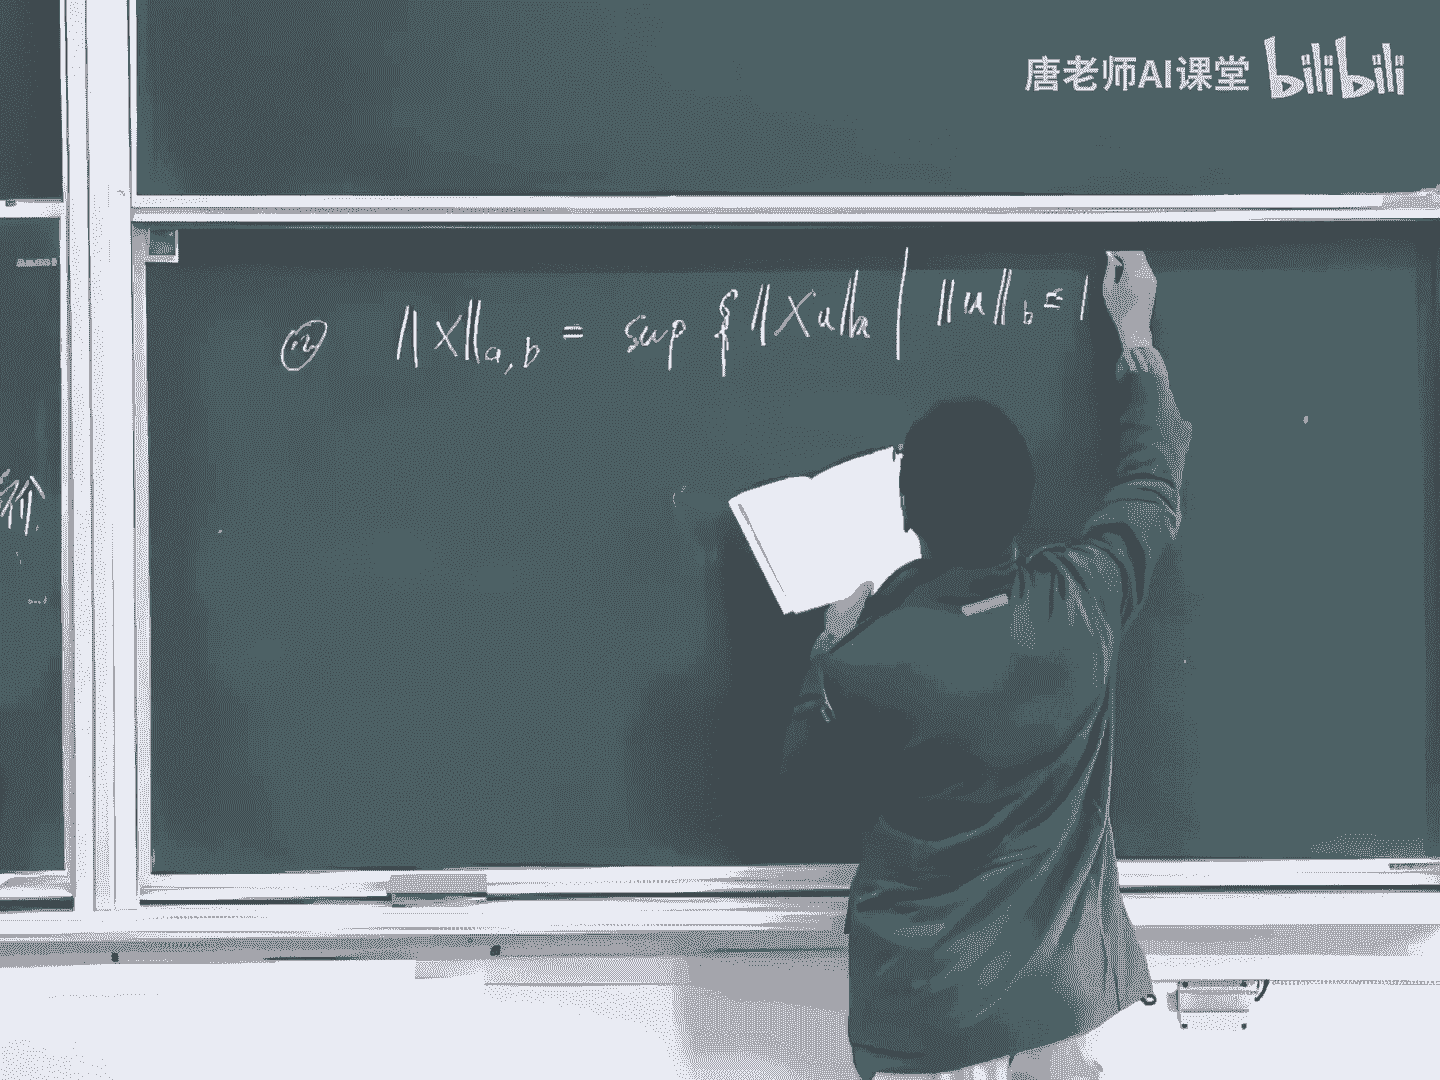 唐老师AI课堂 bilibili
② ||X||a,b = sup { ||Xu||a | ||u||b ≤ 1
价